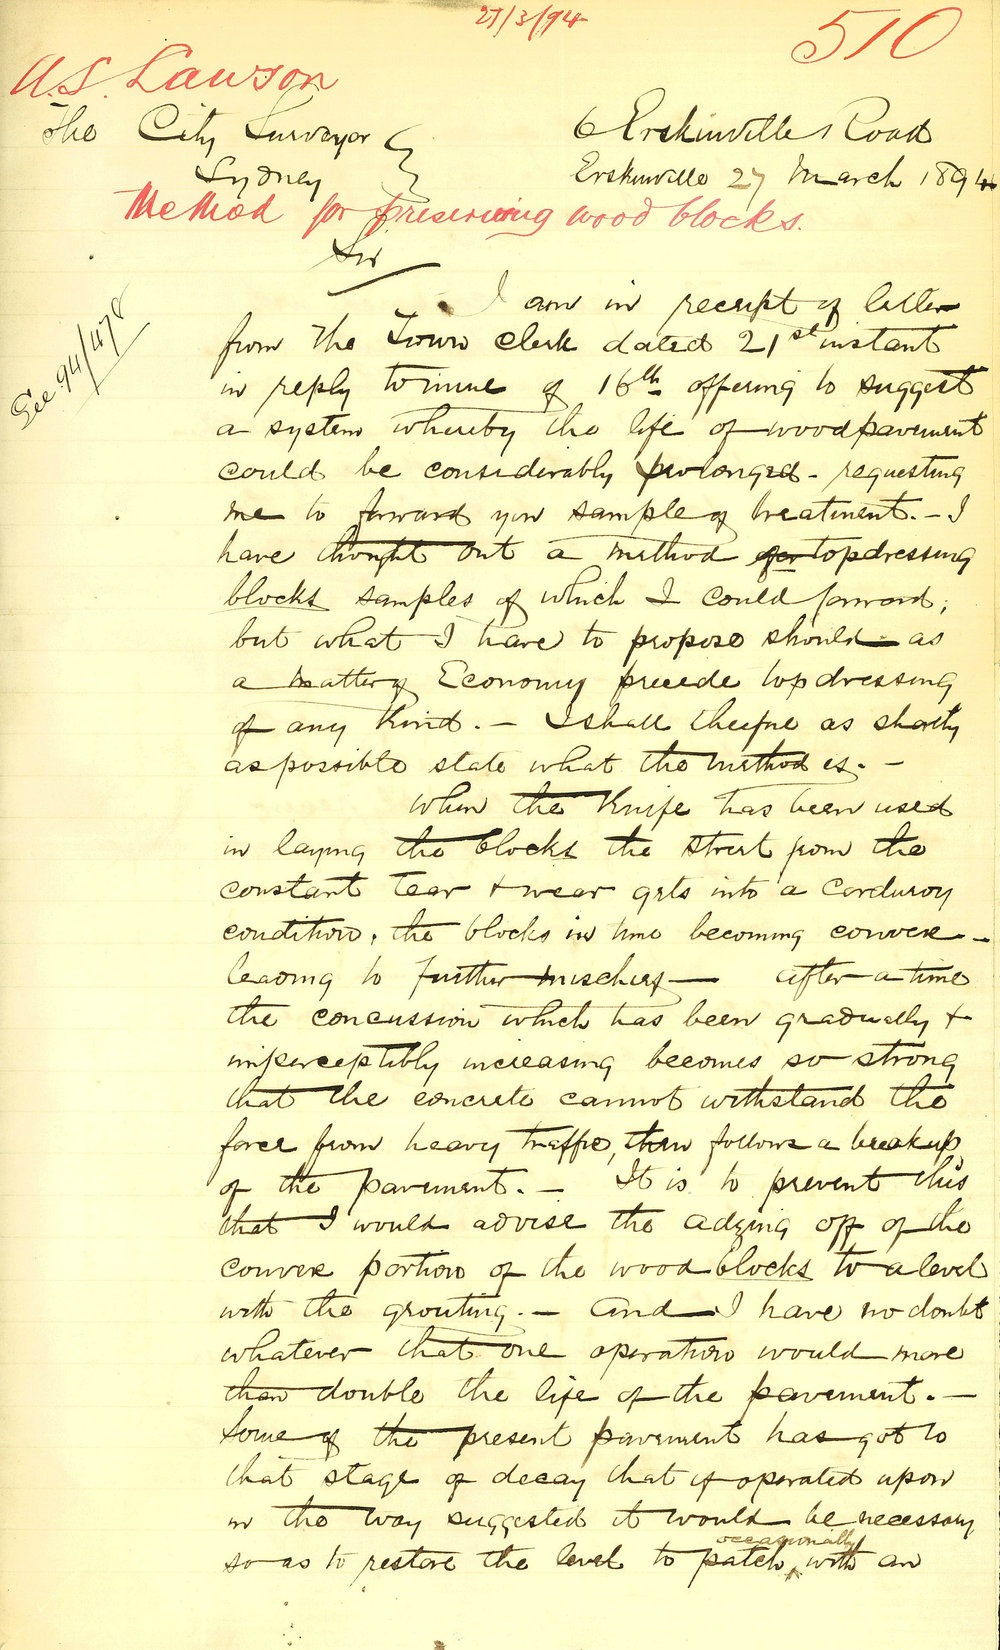 27/3/94
510
A.S. Lawson
The City Surveyor
Sydney
6 Erskinville Road
Erskinville 27 March 1894
Method for preserving wood blocks.
Sir
See 94/478
I am in receipt of letter
from the Town Clerk dated 21st instant
in reply to mine of 16th offering to suggest
a system whereby the life of wood pavement
could be considerably prolonged - requesting
me to forward you sample of treatment. - I
have thought out a method for topdressing
blocks samples of which I could forward;
but what I have to propose should as
a matter of Economy precede topdressing
of any kind. - I shall therefore as shortly
as possible state what the method is. -
When the Knife has been used
in laying the blocks the street from the
constant tear + wear gets into a Corduroy
condition, the blocks in time becoming convex -
leading to further mischief - after a time
the concussion which has been gradually +
imperceptibly increasing becomes so strong
that the concrete cannot withstand the
force from heavy traffic, then follows a break up
of the pavement. - It is to prevent this
that I would advise the adzing off of the
convex portion of the wood blocks to a level
with the grouting. - And I have no doubt
whatever that one operation would more
than double the life of the pavement. -
Some of the present pavement has got to
that stage of decay that if operated upon
in the way suggested it would be necessary
so as to restore the level to patch occasionally with an